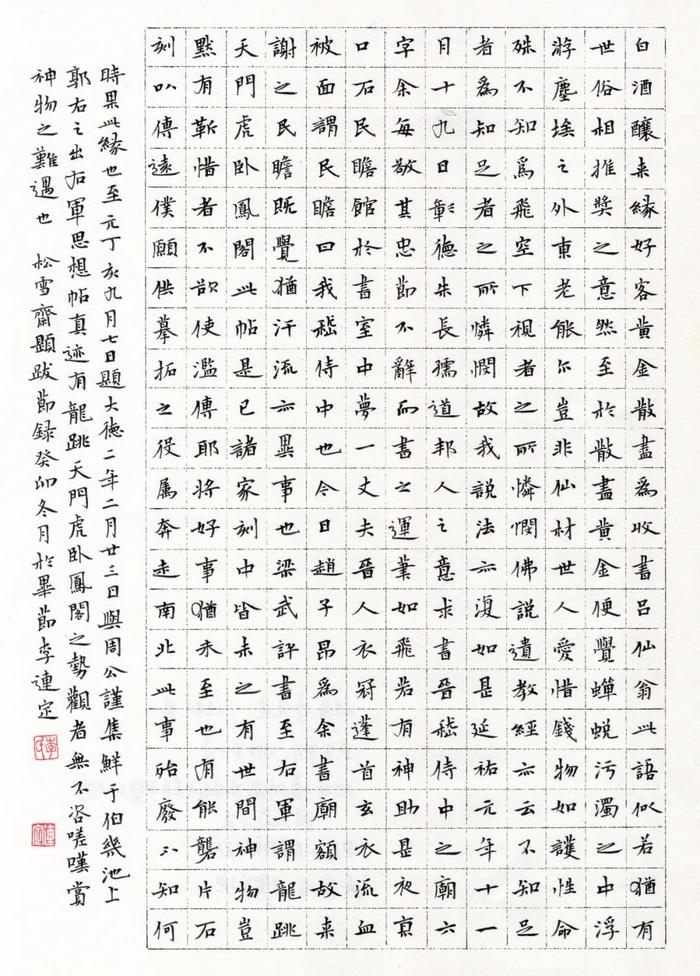 白酒釀来緣好客黄金散盡為收書吕仙翁此語似若猶有
世俗相推奬之意然至於散盡黄金便覺蟬蜕污濁之中浮
游塵埃之外東老能尔豈非仙材世人愛惜錢物如護性命
殊不知為飛空下視者之所憐憫佛説遺教經亦云不知足
者為知足者之所憐憫故我説法亦復如是延祐元年十一
月十九日彰德朱長孺道邦人之意求書晉嵇侍中之廟六
字余每敬其忠節不辭而書之運筆如飛若有神助是夜京
口石民瞻館於書室中夢一丈夫晉人衣冠蓬首玄衣流血
被面謂民瞻曰我嵇侍中也今日趙子昂為余書廟額故来
謝之民瞻既覺猶汗流亦異事也梁武評書至右軍謂龍跳
天門虎卧鳳閣此帖是已諸家刻中皆未之有世間神物豈
默有靳惜者不欲使濫傳耶将好事猶未至也有能礱片石
刻以傳遠僕願供摹拓之役属奔走南北此事殆廢不知何
時果此緣也至元丁亥九月七日題大德二年二月廿三日與周公謹集鮮于伯幾池上
郭右之出右軍思想帖真迹有龍跳天門虎卧鳳閣之勢觀者無不咨嗟嘆賞
神物之難遇也 松雪齋題跋節録癸卯冬月於畢節李連定